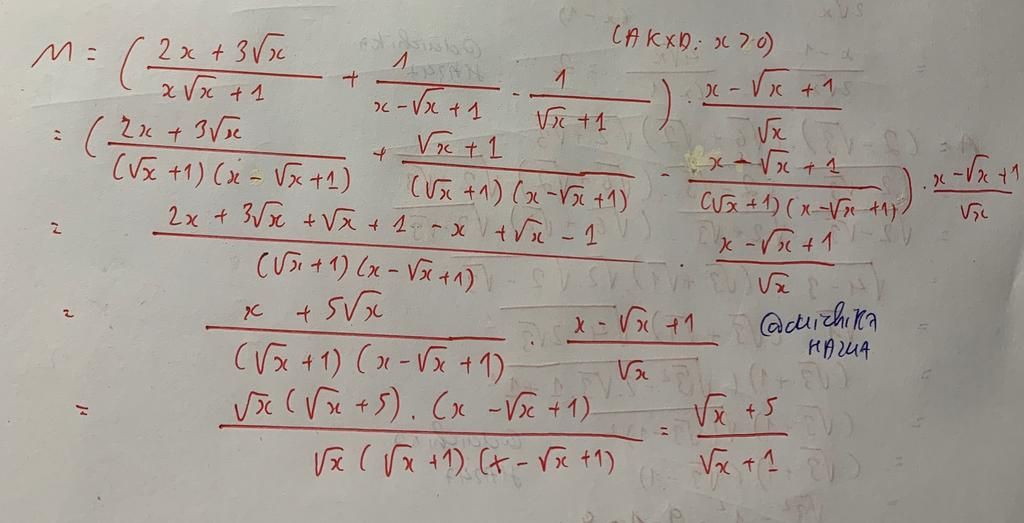 (ĐKXĐ: x > 0)
M = ( (2x + 3√x)/(x√x + 1) + 1/(x - √x + 1) - 1/(√x + 1) ) . (x - √x + 1)/√x
= ( (2x + 3√x)/((√x + 1)(x - √x + 1)) + (√x + 1)/((√x + 1)(x - √x + 1)) - (x - √x + 1)/((√x + 1)(x - √x + 1)) ) . (x - √x + 1)/√x
= (2x + 3√x + √x + 1 - x + √x - 1)/((√x + 1)(x - √x + 1)) . (x - √x + 1)/√x
= (x + 5√x)/((√x + 1)(x - √x + 1)) . (x - √x + 1)/√x
= (√x(√x + 5) . (x - √x + 1))/(√x(√x + 1).(x - √x + 1)) = (√x + 5)/(√x + 1)